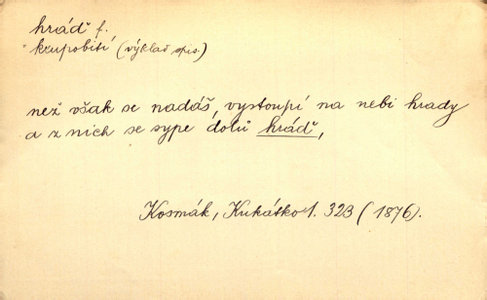 hráď f.
krupobití (výklad spis.)
než však se nadáš, vystoupí na nebi hrady
a z nich se sype dolů hráď,
Kosmák, Kukátko 1. 323 (1876).